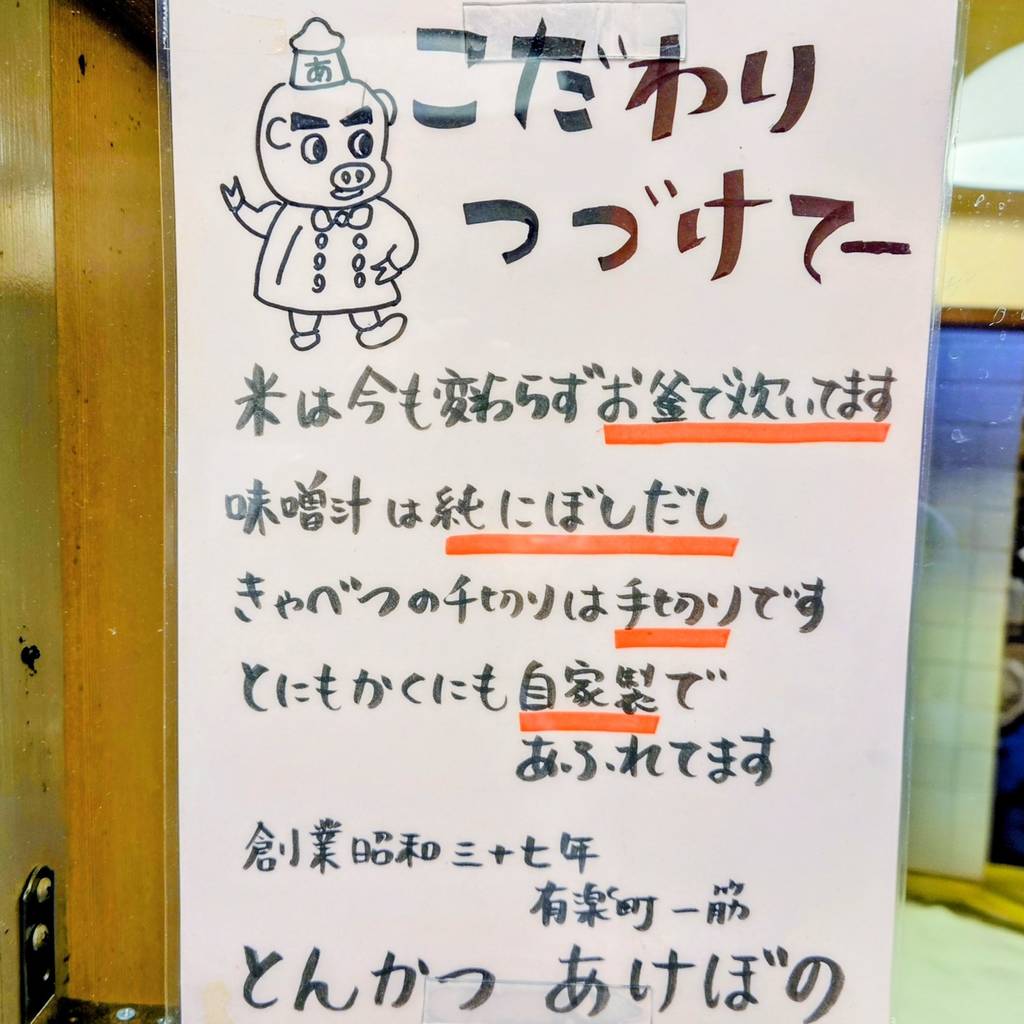 あ
こだわり
つづけてー
米は今も変わらずお釜で炊いてます
味噌汁は純にぼしだし
きゃべつの千切りは手切りです
とにもかくにも自家製で
あふれてます
創業昭和三十七年
有楽町一筋
とんかつ あけぼの